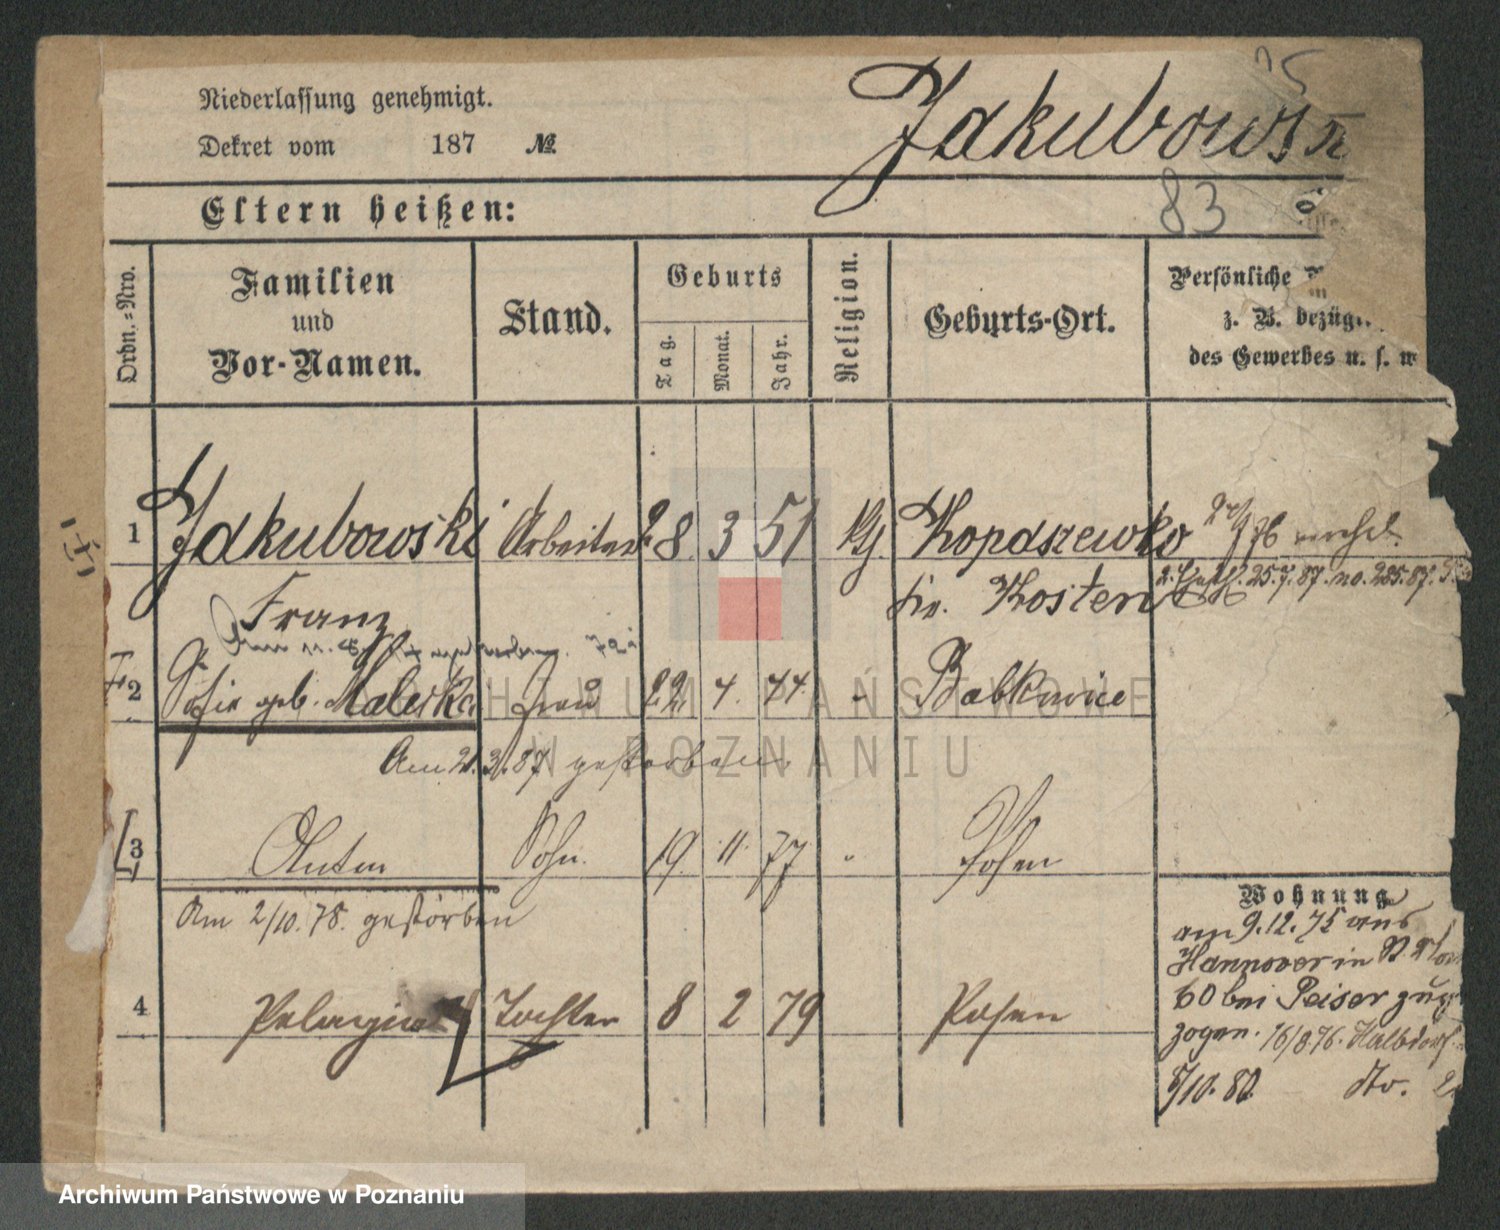 Niederlassung genehmigt.
Dekret vom 187 №
Jakubowski
83
Eltern heißen:
Ordn.-Nro.
Familien
und
Vor-Namen.
Stand.
Geburts
Tag.
Monat.
Jahr.
Religion.
Geburts-Ort.
Persönliche
z. B. bezügl.
des Gewerbes u. s. w
1 Jakubowski Arbeiter 28 3 51 Kopaszewko
Franz Kr. Kosten
25.7.87. no. 285.87.
2 Sofie geb. Maleska Frau 22 4. 44 " Babkowice
Am 21.3.87 gestorben
3 Anton Sohn. 19. 11. 77 " Posen
Am 2/10. 78. gestorben
4 Pelagia Tochter 8 2 79 Posen
Wohnung
am 9.12.75 aus
Hannover in
60 bei Peiser zuge
zogen. 16/8 76. Halbdorf
5/10. 80. dto.
ARCHIWUM PAŃSTWOWE
W POZNANIU
Archiwum Państwowe w Poznaniu